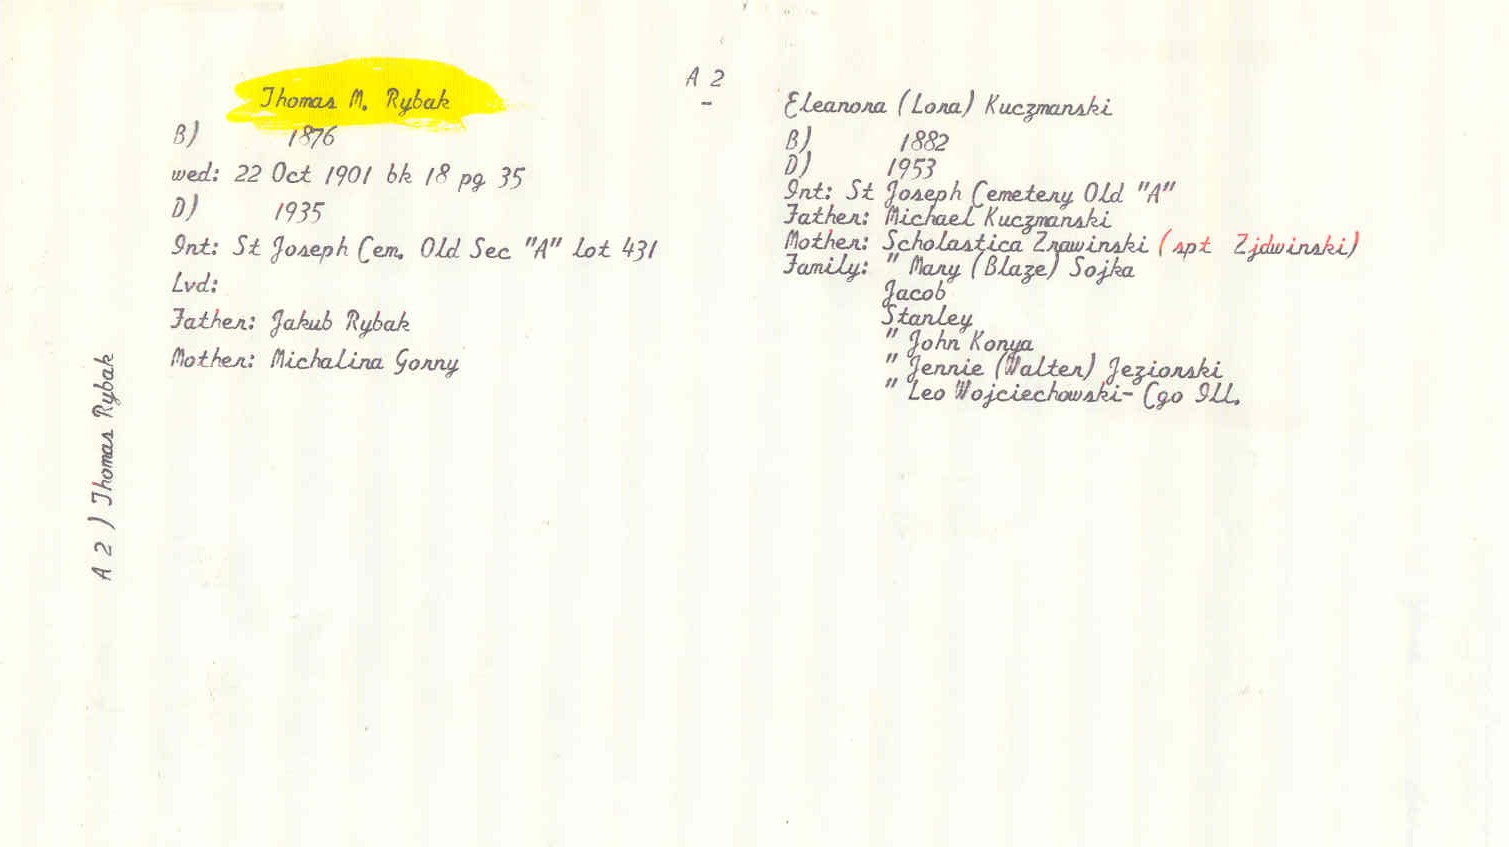 A 2
-
Thomas M. Rybak
B) 1876
wed: 22 Oct 1901 bk 18 pg 35
D) 1935
Int: St Joseph Cem. Old Sec "A" Lot 431
Lvd:
Father: Jakub Rybak
Mother: Michalina Gorny
A 2 ) Thomas Rybak
Eleanora (Lora) Kuczmanski
B) 1882
D) 1953
Int: St Joseph Cemetery Old "A"
Father: Michael Kuczmanski
Mother: Scholastica Zrawinski (spt Zjdwinski)
Family: " Mary (Blaze) Sojka
Jacob
Stanley
" John Konya
" Jennie (Walter) Jeziorski
" Leo Wojciechowski- Cgo Ill.